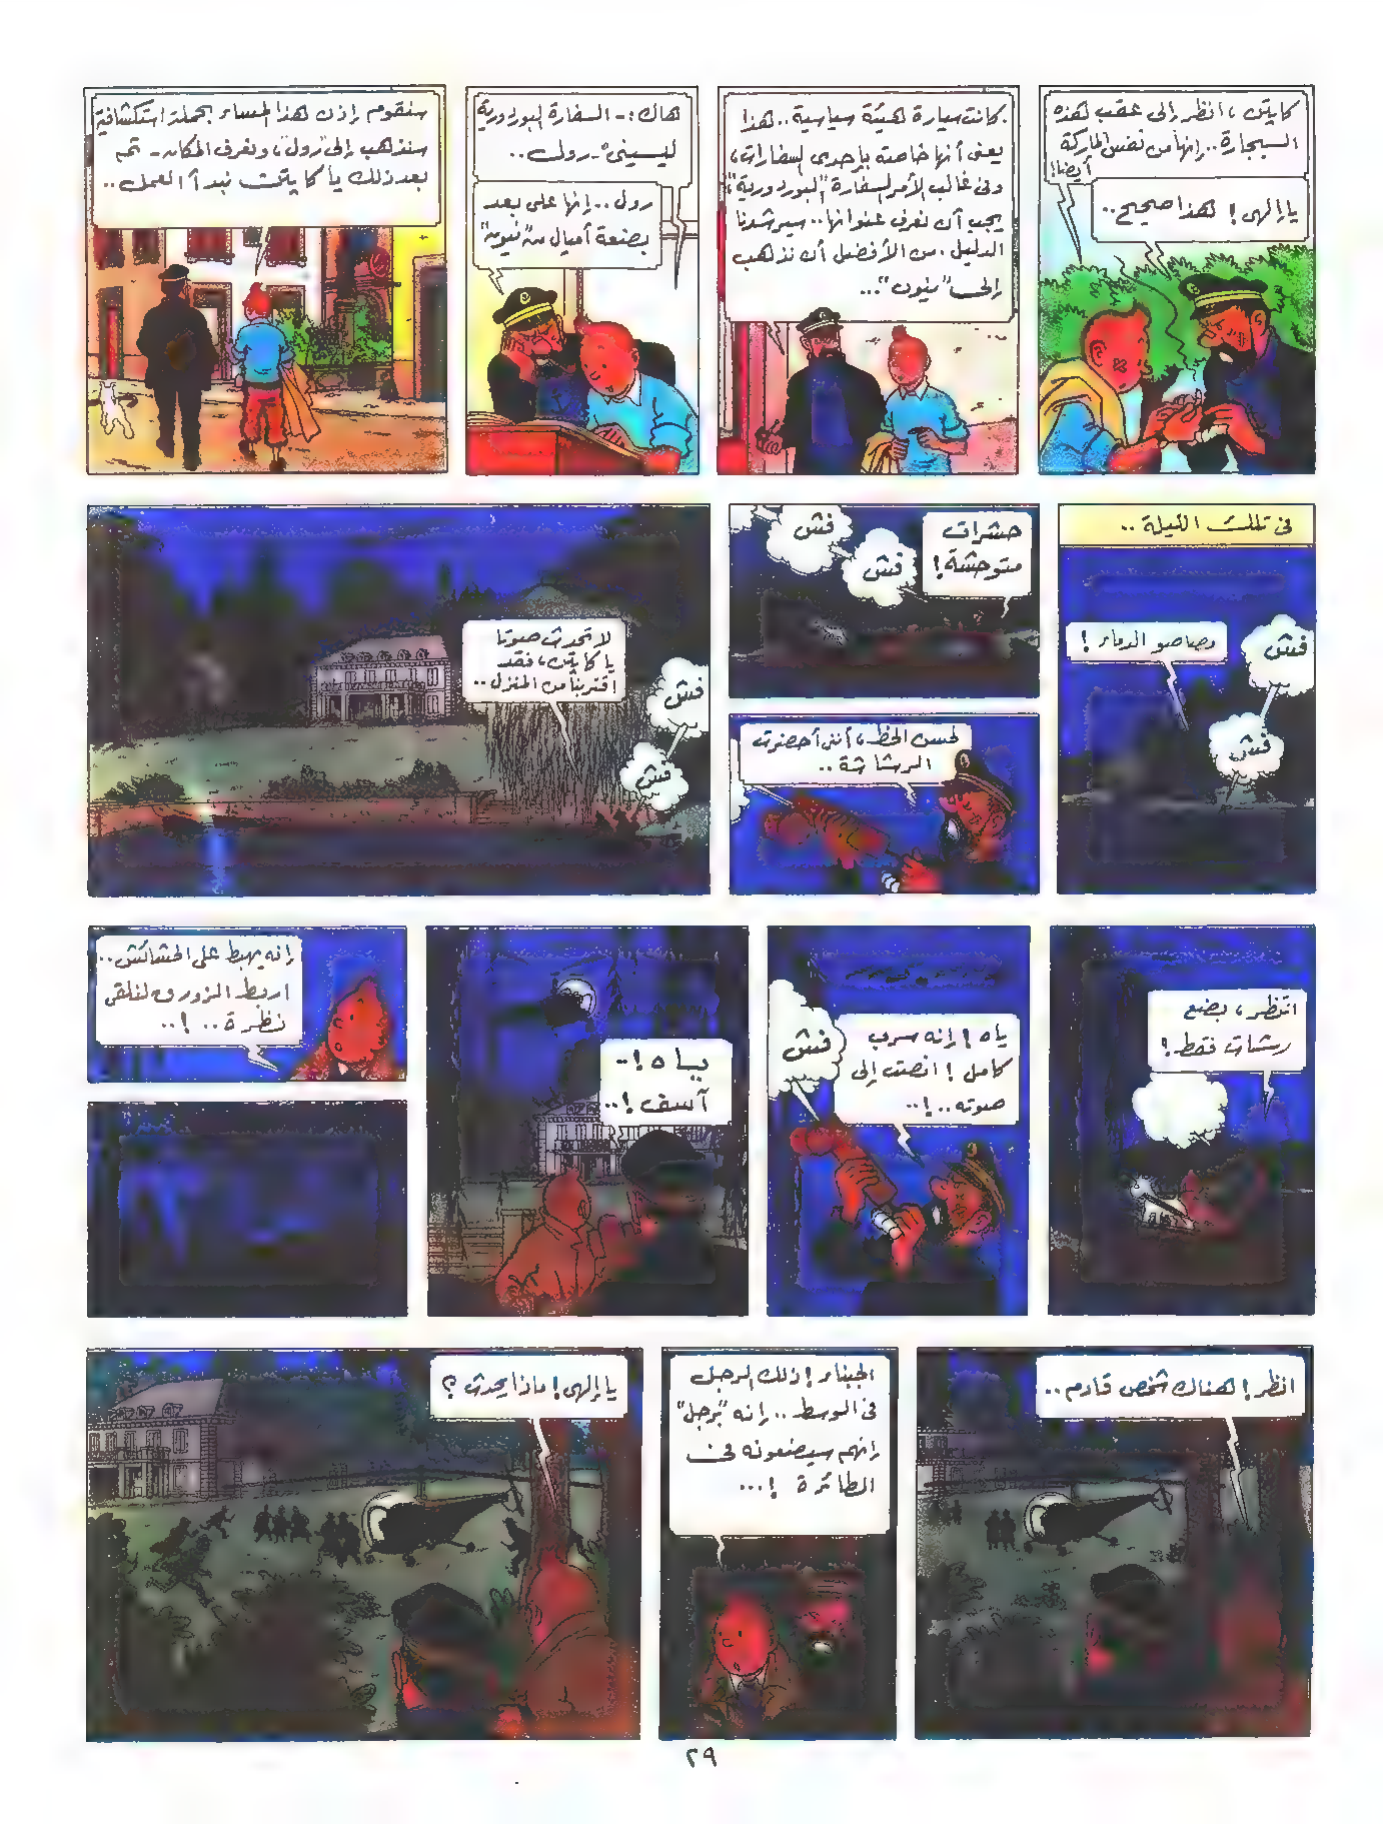 كابتن ، انظر إلى عقب هذه
السيجارة.. إنها من نفس الماركة
أيضا!
يا إلهى ! هذا صحيح..
كانت سيارة هيئة سياسية.. هذا
يعنى أنها خاصة بإحدى السفارات ،
وفى غالب الأمر السفارة "البوردورية" ،
يجب أن نعرف عنوانها.. سيرشدنا
الدليل . من الأفضل أن نذهب
إلى "نيون"...
هاك :- السفارة البوردورية
ليسينى - رول..
رول.. إنها على بعد
بضعة أميال من "نيون"
سنقوم إذن هذا المساء بحملة استكشافية
سنذهب إلى "رول" ، ونعرف المكان - ثم
بعد ذلك يا كابتن نبدأ العمل..
فى تلك الليلة ..
مصاصو الدماء !
فش
فش
حشرات
متوحشة !
فش
فش
لحسن الحظ ، أننى أحضرت
الرشاشة ..
لا تحدث صوتا
يا كابتن ، فقد
اقتربنا من المنزل ..
فش
فش
انتظر ، بضع
رشات فقط !
ياه ! إنه سرب
كامل ! انصت إلى
صوته.. !..
فش
يـاه !-
آسف !..
إنه يهبط على الحشائش..
اربط الزورق لنلقى
نظرة.. !..
انظر ! هناك شخص قادم ..
الجبناء ! ذلك الرجل
فى الوسط .. إنه "برجل"
إنهم سيضعونه فى
الطائرة !...
يا إلهى ! ماذا يحدث ؟
٢٩